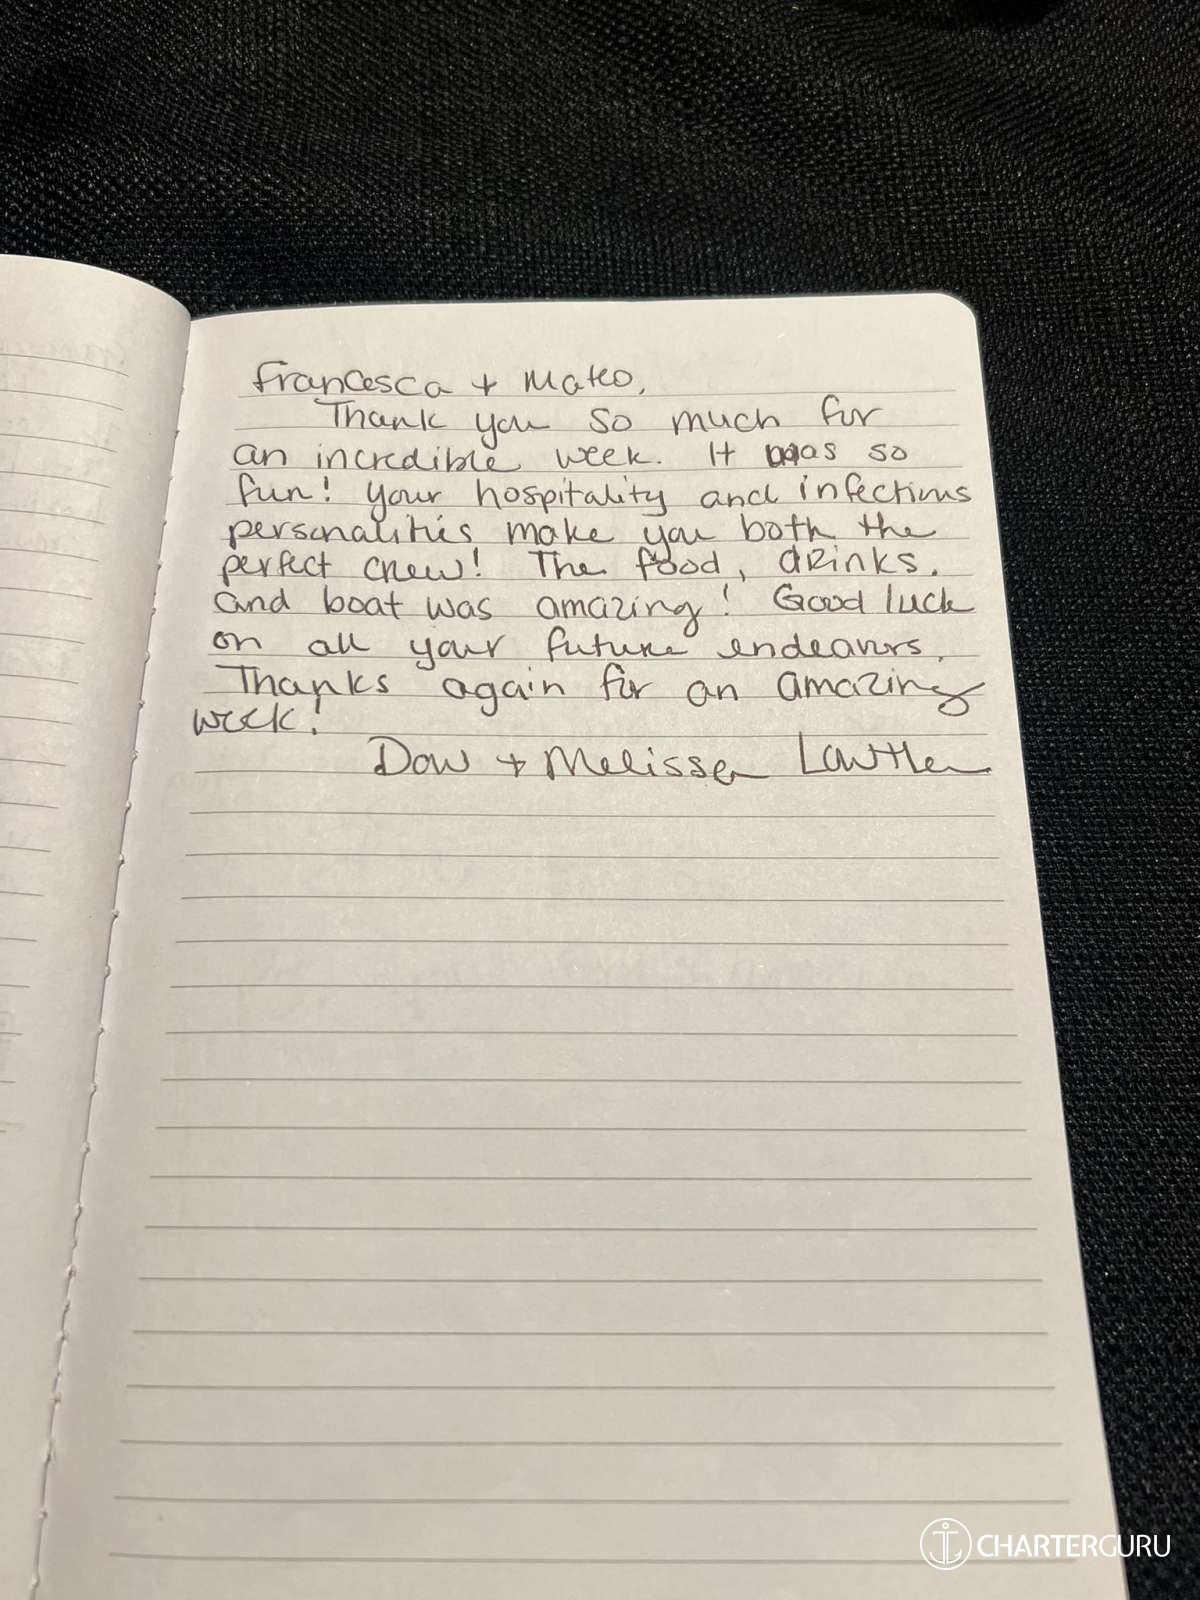 Francesca + Mateo,
Thank you so much for
an incredible week. It was so
fun! Your hospitality and infectious
personalities make you both the
perfect crew! The food, drinks,
and boat was amazing! Good luck
on all your future endeavors.
Thanks again for an amazing
week!
Dow + Melissa
CHARTERGURU